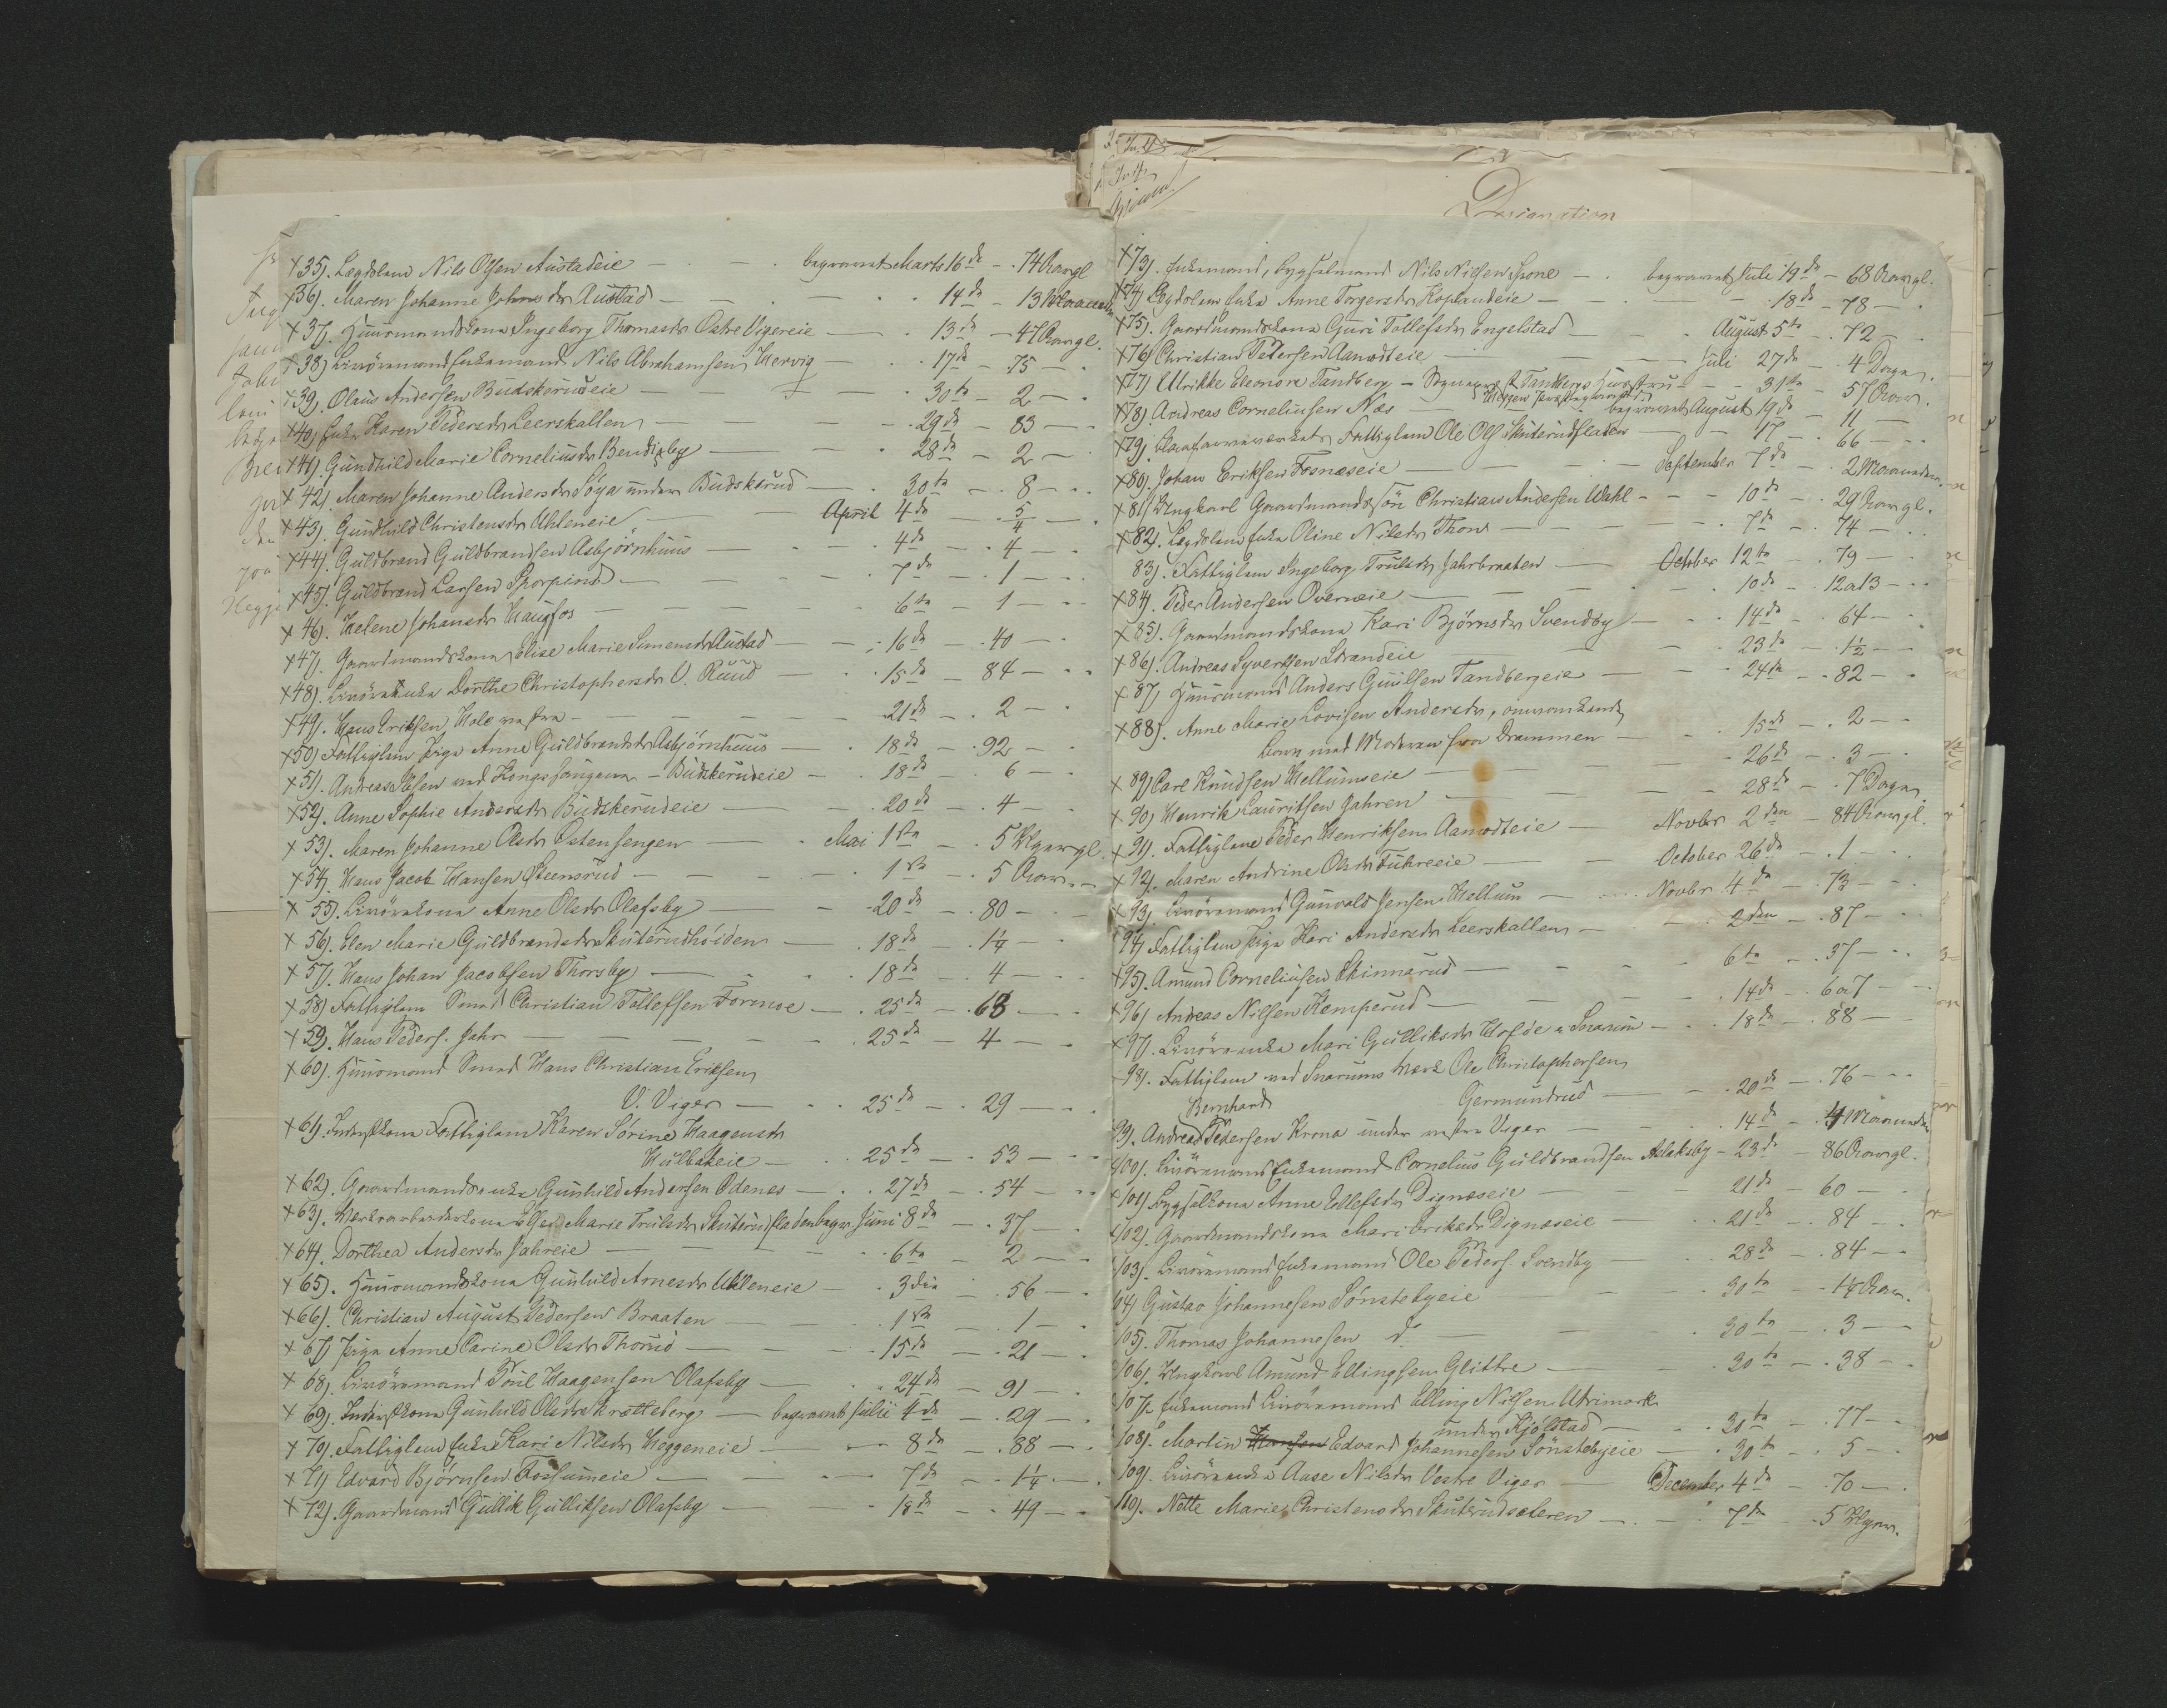 35). Lægdslem Nils Olsen Austadeie — begravet Marts 16de — 74 Aar gl
36). Maren Johanne Johnsdr Austad — 14de — 13
X 37). Huusmandskone Ingeborg Thomasdr Østre Vigereie — 13de — 47 Aar gl.
X 38) Livöremand Enkemand Nils Abrahamsen Hervig — 17de — 75 —
X 39). Olaus Andersen Budskerudeie — 30te — 2 —
X 40) Enke Karen Pedersdr Leerskallen — 29de — 83 —
X 41). Gundhild Marie Corneliusdr Bendigsby — 28de — 2 —
X 42). Maren Johanne Andersdr Söya under Budskerud — 30te — 8 —
X 43). Gundhild Christensdr Uhleneie — April 4de — 5/4 —
X 44). Guldbrand Guldbrandsen Asbjörnhuus — 4de — 4 —
X 45). Guldbrand Larsen — 7de — 1 —
X 46). Helene Johansdr Haugfos — 6te — 1 —
X 47). Gaardmandskone Elise Marie Simensdr Austad — 16de — 40 —
X 48). Livöreenke Dorthe Christophersdr V. Ruud — 15de — 84 —
X 49). Hans Eriksen Hole vestre — 21de — 2 —
X 50) Fattiglem Pige Anne Guldbrandsdr Asbjörnhuus — 18de — 92 —
X 51). Andreas Olsen ved Kongssaugene — Budskerudeie — 18de — 6 —
X 52). Anne Sophie Andersdr Budskerudeie — 20de — 4 —
X 53). Maren Johanne Olsdr Østensengen — Mai 1ste — 5 Uger gl.
X 54). Hans Jacob Hansen Steensrud — 1ste — 5 Aar —
X 55). Livörekone Anne Olsdr Olafsby — 20de — 80 —
X 56). Elen Marie Guldbrandsdr Skuterudhöiden — 18de — 1¼ —
X 57). Hans Johan Jacobsen Thorsby — 18de — 4 —
X 58) Fattiglem Smed Christian Tollefsen Formoe — 25de — 68 —
X 59). Hans Peders. Jahr — 25de — 4 —
X 60). Huusmand Smed Hans Christian Eriksen
V. Viger — 25de — 29 —
X 61). Inderstkone Fattiglem Karen Sörine Haagensdr
Hulbakeie — 25de — 53 —
X 62). Gaardmandsenke Gunhild Andersen Odenes — 27de — 54 —
X 63). Værksarbeiderkone Else Marie Trulsdr Skuterudfladen begr. Juni 8de — 37 —
X 64). Dorthea Andersdr Jahreie — 6te — 2 —
X 65). Huusmandskone Gunhild Arnesdr Uhleneie — 3die — 56 —
X 66). Christian August Pedersen Braaten — 1ste — 1 —
X 67) Pige Anne Carine Olsdr Thorud — 15de — 21 —
X 68). Livöremand Poul Haagensen Olafsby — 24de — 91 —
X 69). Inderstkone Gunhild Olsdr Krætteberg — begravet Julii 4de — 29 —
X 70). Fattiglem Enke Kari Nilsdr Heggeneie — 8de — 88 —
X 71) Edvard Björnsen Fossumeie — 7de — 1¼ —
X 72). Gaardmand Gullik Gulliksen Olafsby — 18de — 49 —
Designation
X 73). Enkemand, Bygselmand Nils Nilsen Spone — begravet Juli 19de — 68 Aar gl.
X 74) Lægdslem Enke Anne Torgersdr Koplandeie — 18de — 78 —
X 75). Gaardmandskone Guri Tollefsdr Engelstad — August 5te — 72 —
X 76) Christian Petersen Aamodteie — Juli 27de — 4 Dage.
X 77) Ulrikke Eleonore Tandberg — Sognepræst Tandbergs Huustru — 31te — 57 Aar.
X 78). Andreas Corneliusen Næs — begravet August 19de — 11 —
X 79). Blaafarveværkets Fattiglem Ole Ols. Skuterudfladen — 17 — 66 —
X 80). Johan Eriksen Fosnæseie — September 7de — 2 Maaneder.
X 81) Ungkarl Gaardmandssön Christian Andersen Wahl — 10de — 29 Aar gl.
X 82). Lægdslem Enke Oline Nilsdr Thon — 7de — 74 —
83). Fattiglem Ingeborg Trulsdr Jahrbraaten — October 12te — 79 —
X 84). Peder Andersen Overneie — 10de — 12 a 13 —
X 85). Gaardmandskone Kari Björnsdr Svendby — 14de — 64 —
X 86). Andreas Syvertsen Strandeie — 23de — 1½ —
X 87) Huusmand Anders Gulsen Tandbergeie — 24de — 82 —
X 88). Anne Marie Lovisen Andersdr, omvankende
Barn med Moderen fra Drammen — 15de — 2 —
X 89) Carl Knudsen Hellumeie — 26de — 3 —
X 90) Henrik Lauritsen Jahren — 28de — 7 Dage
X 91). Fattiglem Peder Henriksen Aamodteie — Novbr 2den — 84 Aar gl.
X 92). Maren Andrine Olsdr Fuhreeie — October 26de — 1 —
X 93). Livöremand Gunvald Jensen Hellum — Novbr 4de — 73 —
X 94) Fattiglem Pige Kari Andersdr Leerskallen — 2den — 87 —
X 95). Amund Corneliusen Skinnarud — 6te — 37 —
X 96) Andreas Nilsen Kemperud — 14de — 6 a 7 —
X 97). Livöreenke Mari Gulliksdr Hofde i Snarum — 18de — 88 —
98). Fattiglem ved Snarums Værk Ole Christophersen
Germundrud — 20de — 76 —
Bernhard
99). Andreas Pedersen Krona under vestre Viger — 14de — 4 Maaneder
100). Livöremand Enkemand Cornelius Guldbrandsen Aslaksby — 23de — 86 Aar gl.
X 101) Bygselkone Anne Ellefsdr Dignæseie — 21de — 60 —
102). Gaardmandskone Mari Eriksdr Dignæseie — 21de — 84 —
103). Livöremand Enkemand Ole Peders. Svendby — 28de — 84 —
104) Gustav Johannesen Sönstebyeie — 30te — 1¼ Aar.
105). Thomas Johannesen do — 30te — 3 —
106). Ungkarl Amund Ellingsen Glittre — 30te — 38 —
107). Enkemand Livöremand Elling Nilsen Utrimark
under Kjölstad — 30te — 77 —
108). Martin Hansen Edvard Johannesen Sönstebyeie — 30te — 5 —
109). Livöreenke Aase Nilsdr Vestre Viger — December 4de — 70 —
110). Nette Marie Christensdr Skuterudsæteren — 7de — 5 Uger.